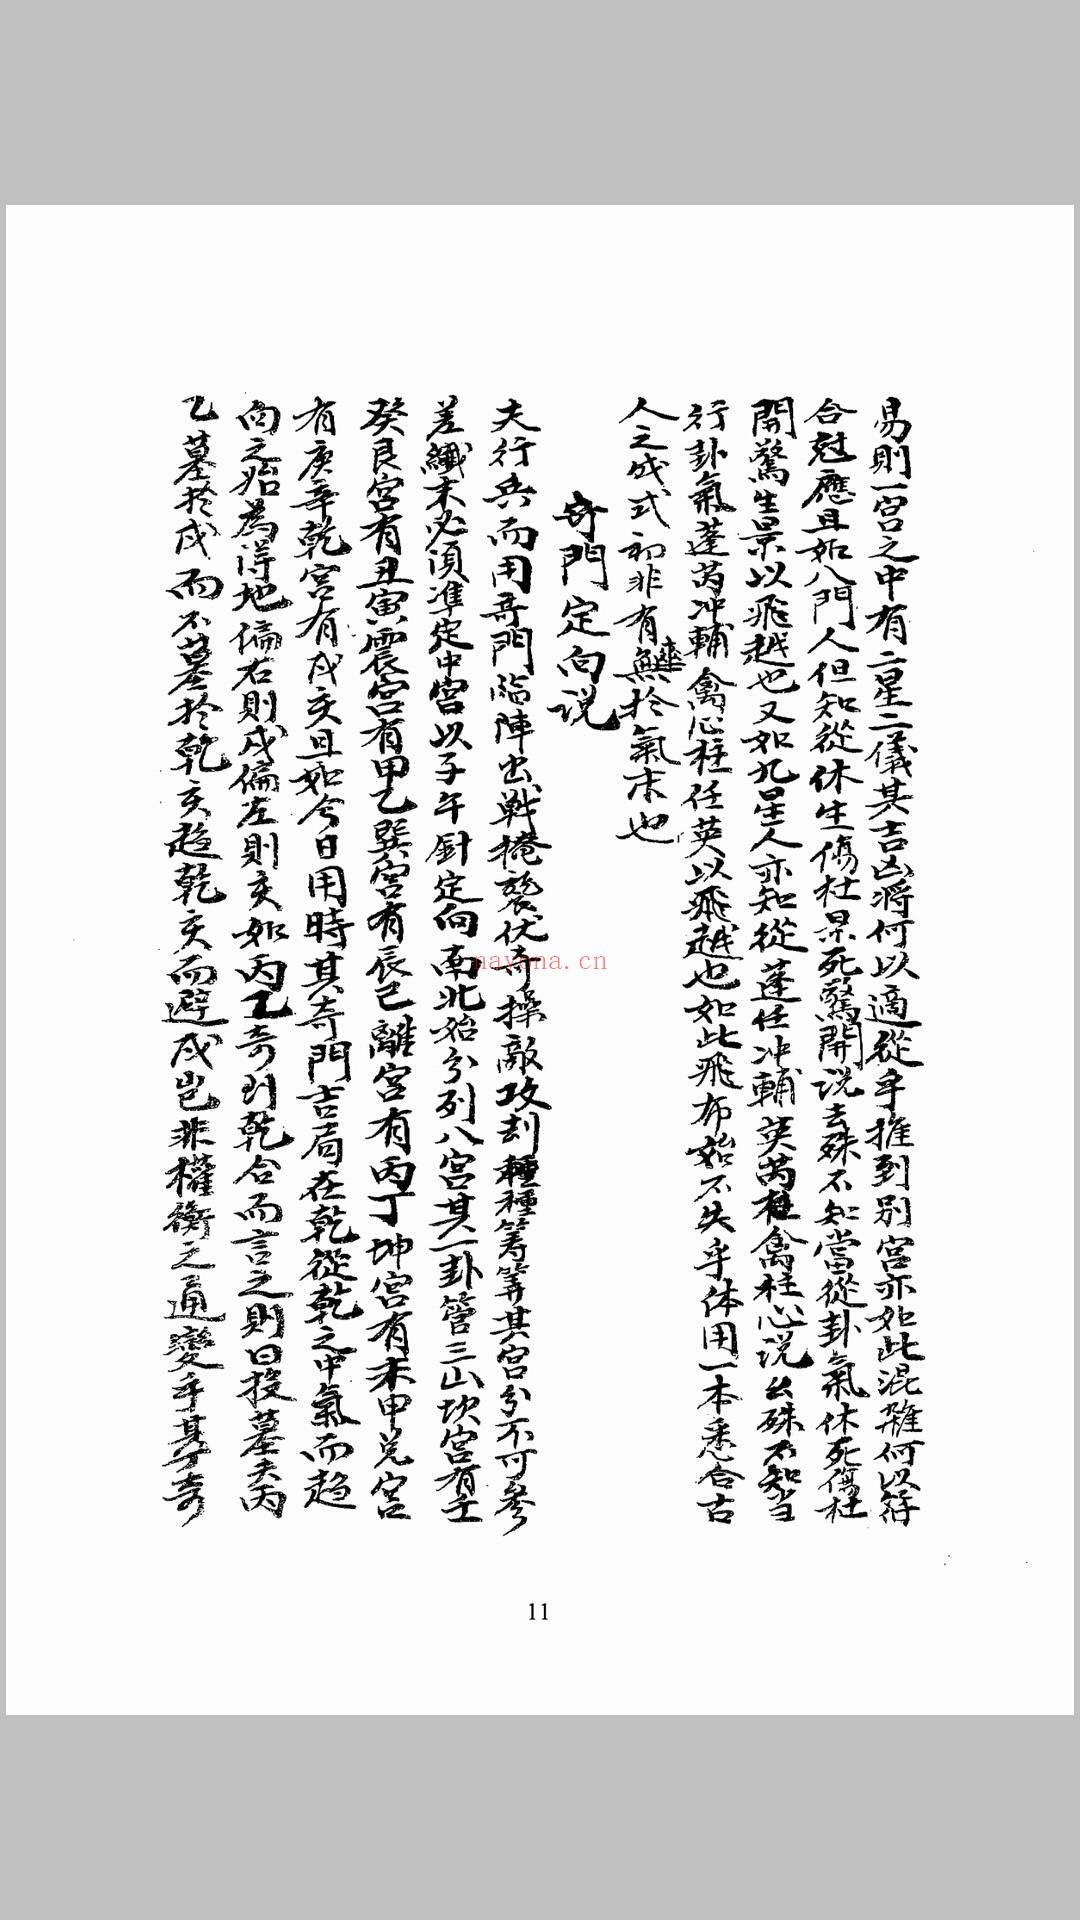 易則一宮之中有二星二儀其吉凶將何以適從乎推到別宮亦如此混雜何以符
合尅應且如八門人但知從休生傷杜景死驚開説去殊不知當從卦氣休死傷杜
開驚生景以飛越也又如九星人亦知從蓬任冲輔英芮柱禽柱心说去殊不知当
行卦氣蓬芮冲輔禽心柱任英以飛越也如此飛布始不失乎体用一本悉合古
人之成式初非有於氣末也
奇門定向说
夫行兵而用奇門臨陣出戦掩襲伏奇操敵攻刦種種等等其宮分不可參
差纖末必須準定中宮以子午針定向南北始分列八宮其一卦管三山坎宮有壬
癸艮宮有丑寅震宮有甲乙巽宮有辰巳離宮有丙丁坤宮有未申兑宮
有庚辛乾宮有戌亥且如今日用時其奇門吉局在乾從乾之中氣而趋
向之始為得地偏右則戌偏左則亥如丙乙奇到乾合而言之則曰投墓夫丙
乙墓於戌而不墓於乾亥趋乾亥而避戌岂非權衡之通變乎其丁奇
nayona.cn
11